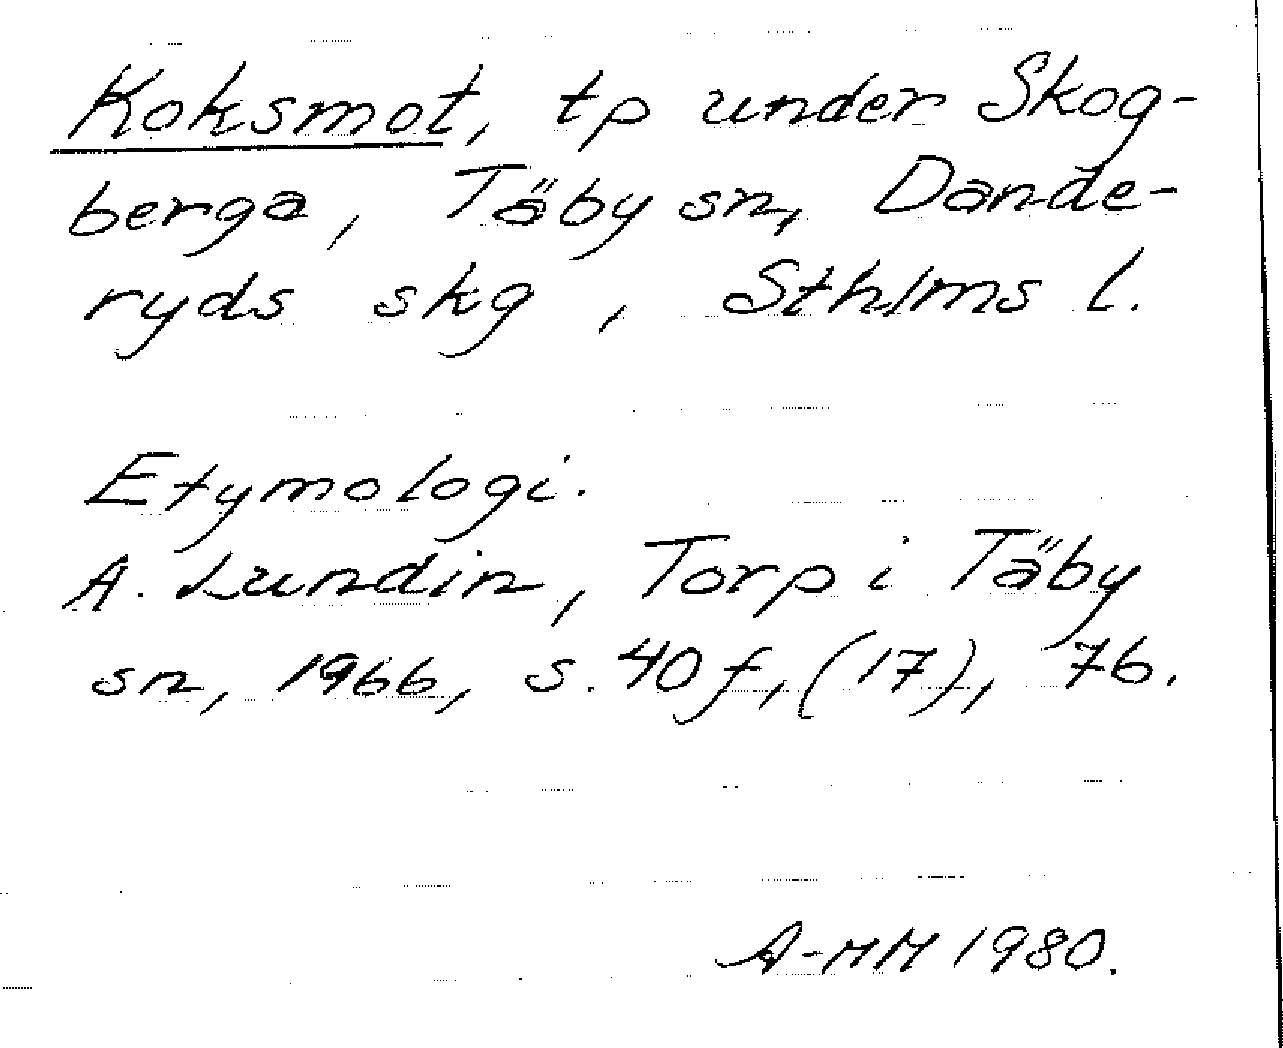 Koksmot, tp under Skog-
berga, Täby sn, Dande-
ryds skg, Sthlms l.
Etymologi.
A. Lundin, Torp i Täby
sn, 1966, s. 40 f, (17), 76.
A-MM 1980.